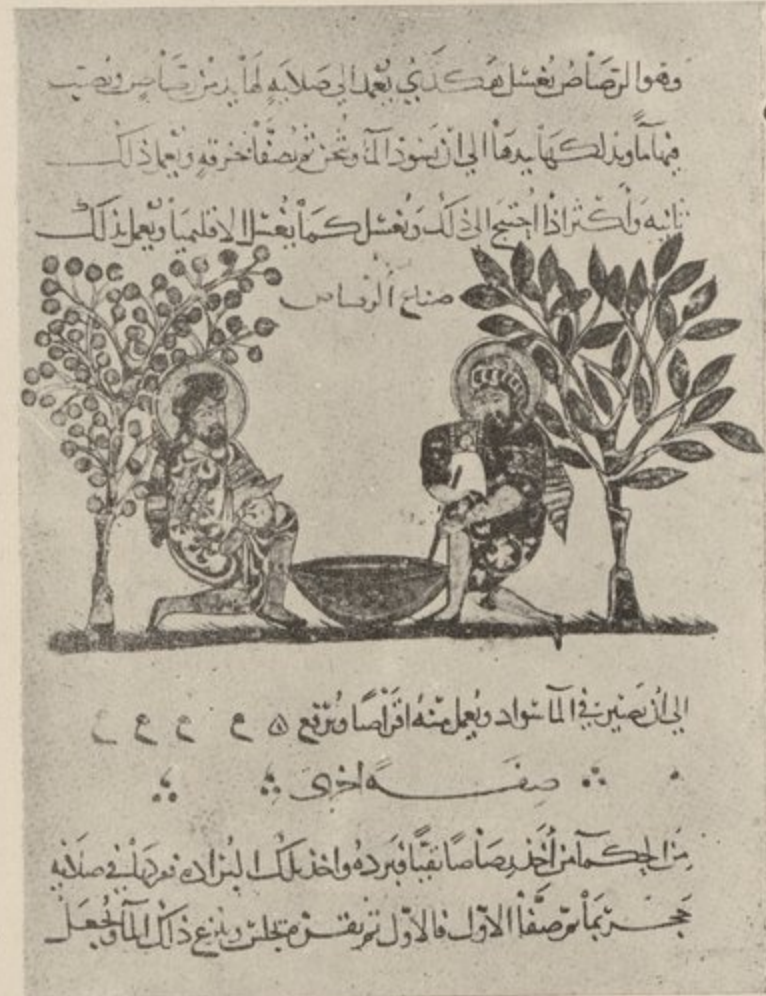 وهو الرصاص يغسل هكذي يعمد الى صلايه لها يد من رصاص ويصب
فيها ما ويدلك يدها الى ان يسود الما ويثخن ثم يصفا بخرقه ويعمل ذلك
ثانيه وأكثر اذا احتيج الى ذلك ويغسل كما يغسل الاقليميا ويعمل ذلك
صناع الرصاص
الى ان يصير في الما سواد ويعمل منه اقراصا ويرفع ه
صفه اخرى
من الحكما من أخذ رصاصا نقيا فبرده واخذ تلك البراده في صلايه
حجر بما ثم صفا الاول فالاول ثم يقر ذلك الما ويجعل